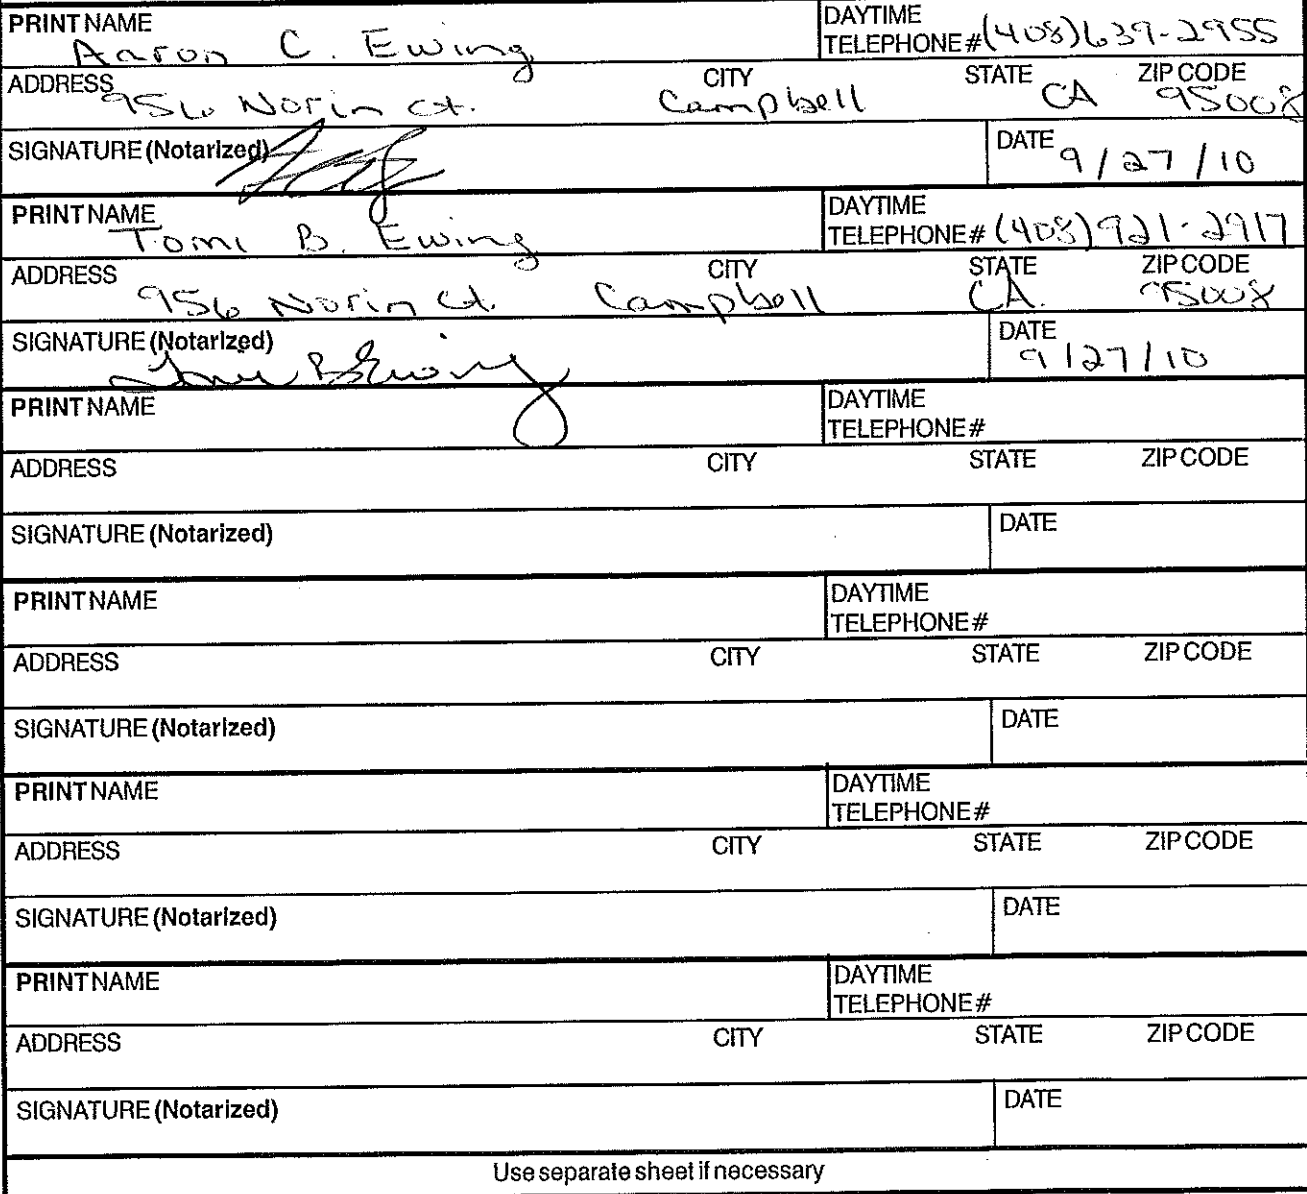 PRINT NAME Aaron C. Ewing DAYTIME TELEPHONE # (408) 639-2955
ADDRESS 956 Norin Ct. CITY Campbell STATE CA ZIP CODE 95008
SIGNATURE (Notarized) DATE 9/27/10
PRINT NAME Tomi B. Ewing DAYTIME TELEPHONE # (408) 921-2917
ADDRESS 956 Norin Ct. CITY Campbell STATE CA. ZIP CODE 95008
SIGNATURE (Notarized) Tomi B Ewing DATE 9/27/10
PRINT NAME DAYTIME TELEPHONE #
ADDRESS CITY STATE ZIP CODE
SIGNATURE (Notarized) DATE
PRINT NAME DAYTIME TELEPHONE #
ADDRESS CITY STATE ZIP CODE
SIGNATURE (Notarized) DATE
PRINT NAME DAYTIME TELEPHONE #
ADDRESS CITY STATE ZIP CODE
SIGNATURE (Notarized) DATE
PRINT NAME DAYTIME TELEPHONE #
ADDRESS CITY STATE ZIP CODE
SIGNATURE (Notarized) DATE
Use separate sheet if necessary